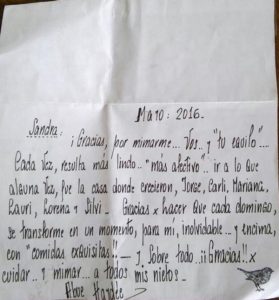 Mayo: 2016.
Sandra:
¡Gracias, por mimarme... Vos.. y "tu equilo"...
Cada vez, resulta más lindo.. "más afectivo".. ir a lo que
alguna vez, fue la casa donde crecieron, Jorge, Carli, Mariana,
Lauri, Lorena y Silvi - Gracias x hacer que cada domingo,
se transforme en un momento, para mi, inolvidable.. y encima,
con "comidas exquisitas" - y, Sobre todo.. ¡¡Gracias!! x
cuidar.. y mimar... a todos mis nietos -